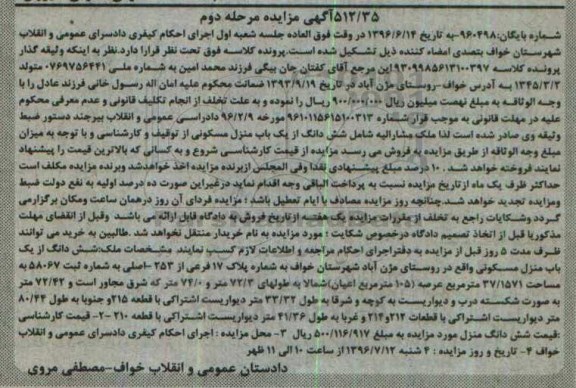 ۵۱۲/۳۵آگهی مزایده مرحله دوم
شماره بایگان:۹۶۰۴۹۸-به تاریخ ۱۳۹۶/۶/۱۴ در وقت فوق العاده جلسه شعبه اول اجرای احکام کیفری دادسرای عمومی و انقلاب
شهرستان خواف بتصدی امضاء کننده ذیل تشکیل شده است.پرونده کلاسه فوق تحت نظر قرار دارد.نظر به اینکه وثیقه گذار
پرونده کلاسه ۹۳۰۹۹۸۵۶۱۳۱۰۰۳۹۷ این مرجع آقای کفتان جان بیگی فرزند محمد امین به شماره ملی ۰۷۶۹۷۵۶۴۴۱ متولد
۱۳۴۵/۳/۳ به آدرس خواف-روستای مژن آباد در تاریخ ۱۳۹۳/۹/۱۹ ضمانت محکوم علیه امان اله رسول خانی فرزند عادل را با
وجه الوثاقه به مبلغ نهصت میلیون ریال ۹۰۰/۰۰۰/۰۰۰ ریال را نموده و به علت تخلف از انجام تکلیف قانونی و عدم معرفی محکوم
علیه در مهلت قانونی به موجب قرار شماره ۹۶۱۰۱۱۵۶۱۵۱۰۰۳۱۳ مورخه ۹۶/۲/۹ دادراسی عمومی و انقلاب بیرجند دستور ضبط
وثیقه وی صادر شده است لذا ملک مشارالیه شامل شش دانگ از یک باب منزل مسکونی از توقیف و کارشناسی و با توجه به میزان
مبلغ وجه الوثاقه از طریق مزایده به فروش می رسد مزایده از قیمت کارشناسی شروع و به کسانی که بالاترین قیمت را پیشنهاد
نمایند فروخته خواهد شد . ۱۰ درصد مبلغ پیشنهادی نقدا وفی المجلس ازبرنده مزایده اخذ خواهدشد وبرنده مزایده مکلف است
حداکثر ظرف یک ماه ازتاریخ مزایده نسبت به پرداخت الباقی وجه اقدام نماید درغیراین صورت ده درصد اولیه به نفع دولت ضبط
ومزایده تجدید خواهد شد.چنانچه روز مزایده مصادف با ایام تعطیل باشد ؛ مزایده فردای آن روز درهمان ساعت ومکان برگزارمی
گردد وشکایات راجع به تخلف از مقررات مزایده یک هفته ازتاریخ فروش به دادگاه قابل ارائه می باشد وقبل از انقضای مهلت
مذکوریا قبل از اتخاذ تصمیم دادگاه درخصوص شکایت ؛ مورد مزایده به نام خریدار منتقل نخواهد شد .طالبین به خرید می توانند
ظرف مدت ۵ روز قبل از مزایده به دفتراجرای احکام مراجعه و اطلاعات لازم کسب نمایند. مشخصات ملک:شش دانگ از یک
باب منزل مسکونی واقع در روستای مژن آباد شهرستان خواف به شماره پلاک ۱۷ فرعی از ۲۵۳ -اصلی به شماره ثبت ۵۸۰۶۷ به
مساحت ۳۷/۱۵۷۱ مترمربع عرصه (۱۰۵ مترمربع اعیان)شمالا به طولهای ۷۲/۳ متر و ۷۴/۰ متر که شرق مجاور است و ۷۲/۴۲ متر
به صورت شکسته درب و دیواریست به کوچه و شرقا به طول ۳۳/۳۲ متر دیواریست اشتراکی با قطعه ۲۱۵و جنوبا به طول ۸۰/۴۴
متر دیواریست اشتراکی با قطعات ۲۱۲و۲۱۴ و غربا به طول ۴۱/۳۶ متر دیواریست اشتراکی با قطعه ۲۱۰ -۲- قیمت کارشناسی
:قیمت شش دانگ منزل مورد مزایده به مبلغ ۵۰۰/۱۱۶/۹۱۷ ریال ۳- محل مزایده : اجرای احکام کیفری دادسرای عمومی و انقلاب
خواف ۴- تاریخ و روز مزایده : ۴ شنبه ۱۳۹۶/۷/۱۲ از ساعت ۱۰ الی ۱۱ ظهر
دادستان عمومی و انقلاب خواف-مصطفی مروی